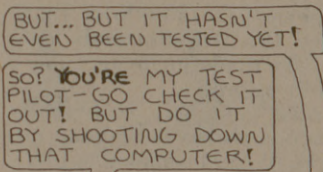 BUT... BUT IT HASN'T
EVEN BEEN TESTED YET!
SO? YOU'RE MY TEST
PILOT-GO CHECK IT
OUT! BUT DO IT
BY SHOOTING DOWN
THAT COMPUTER!